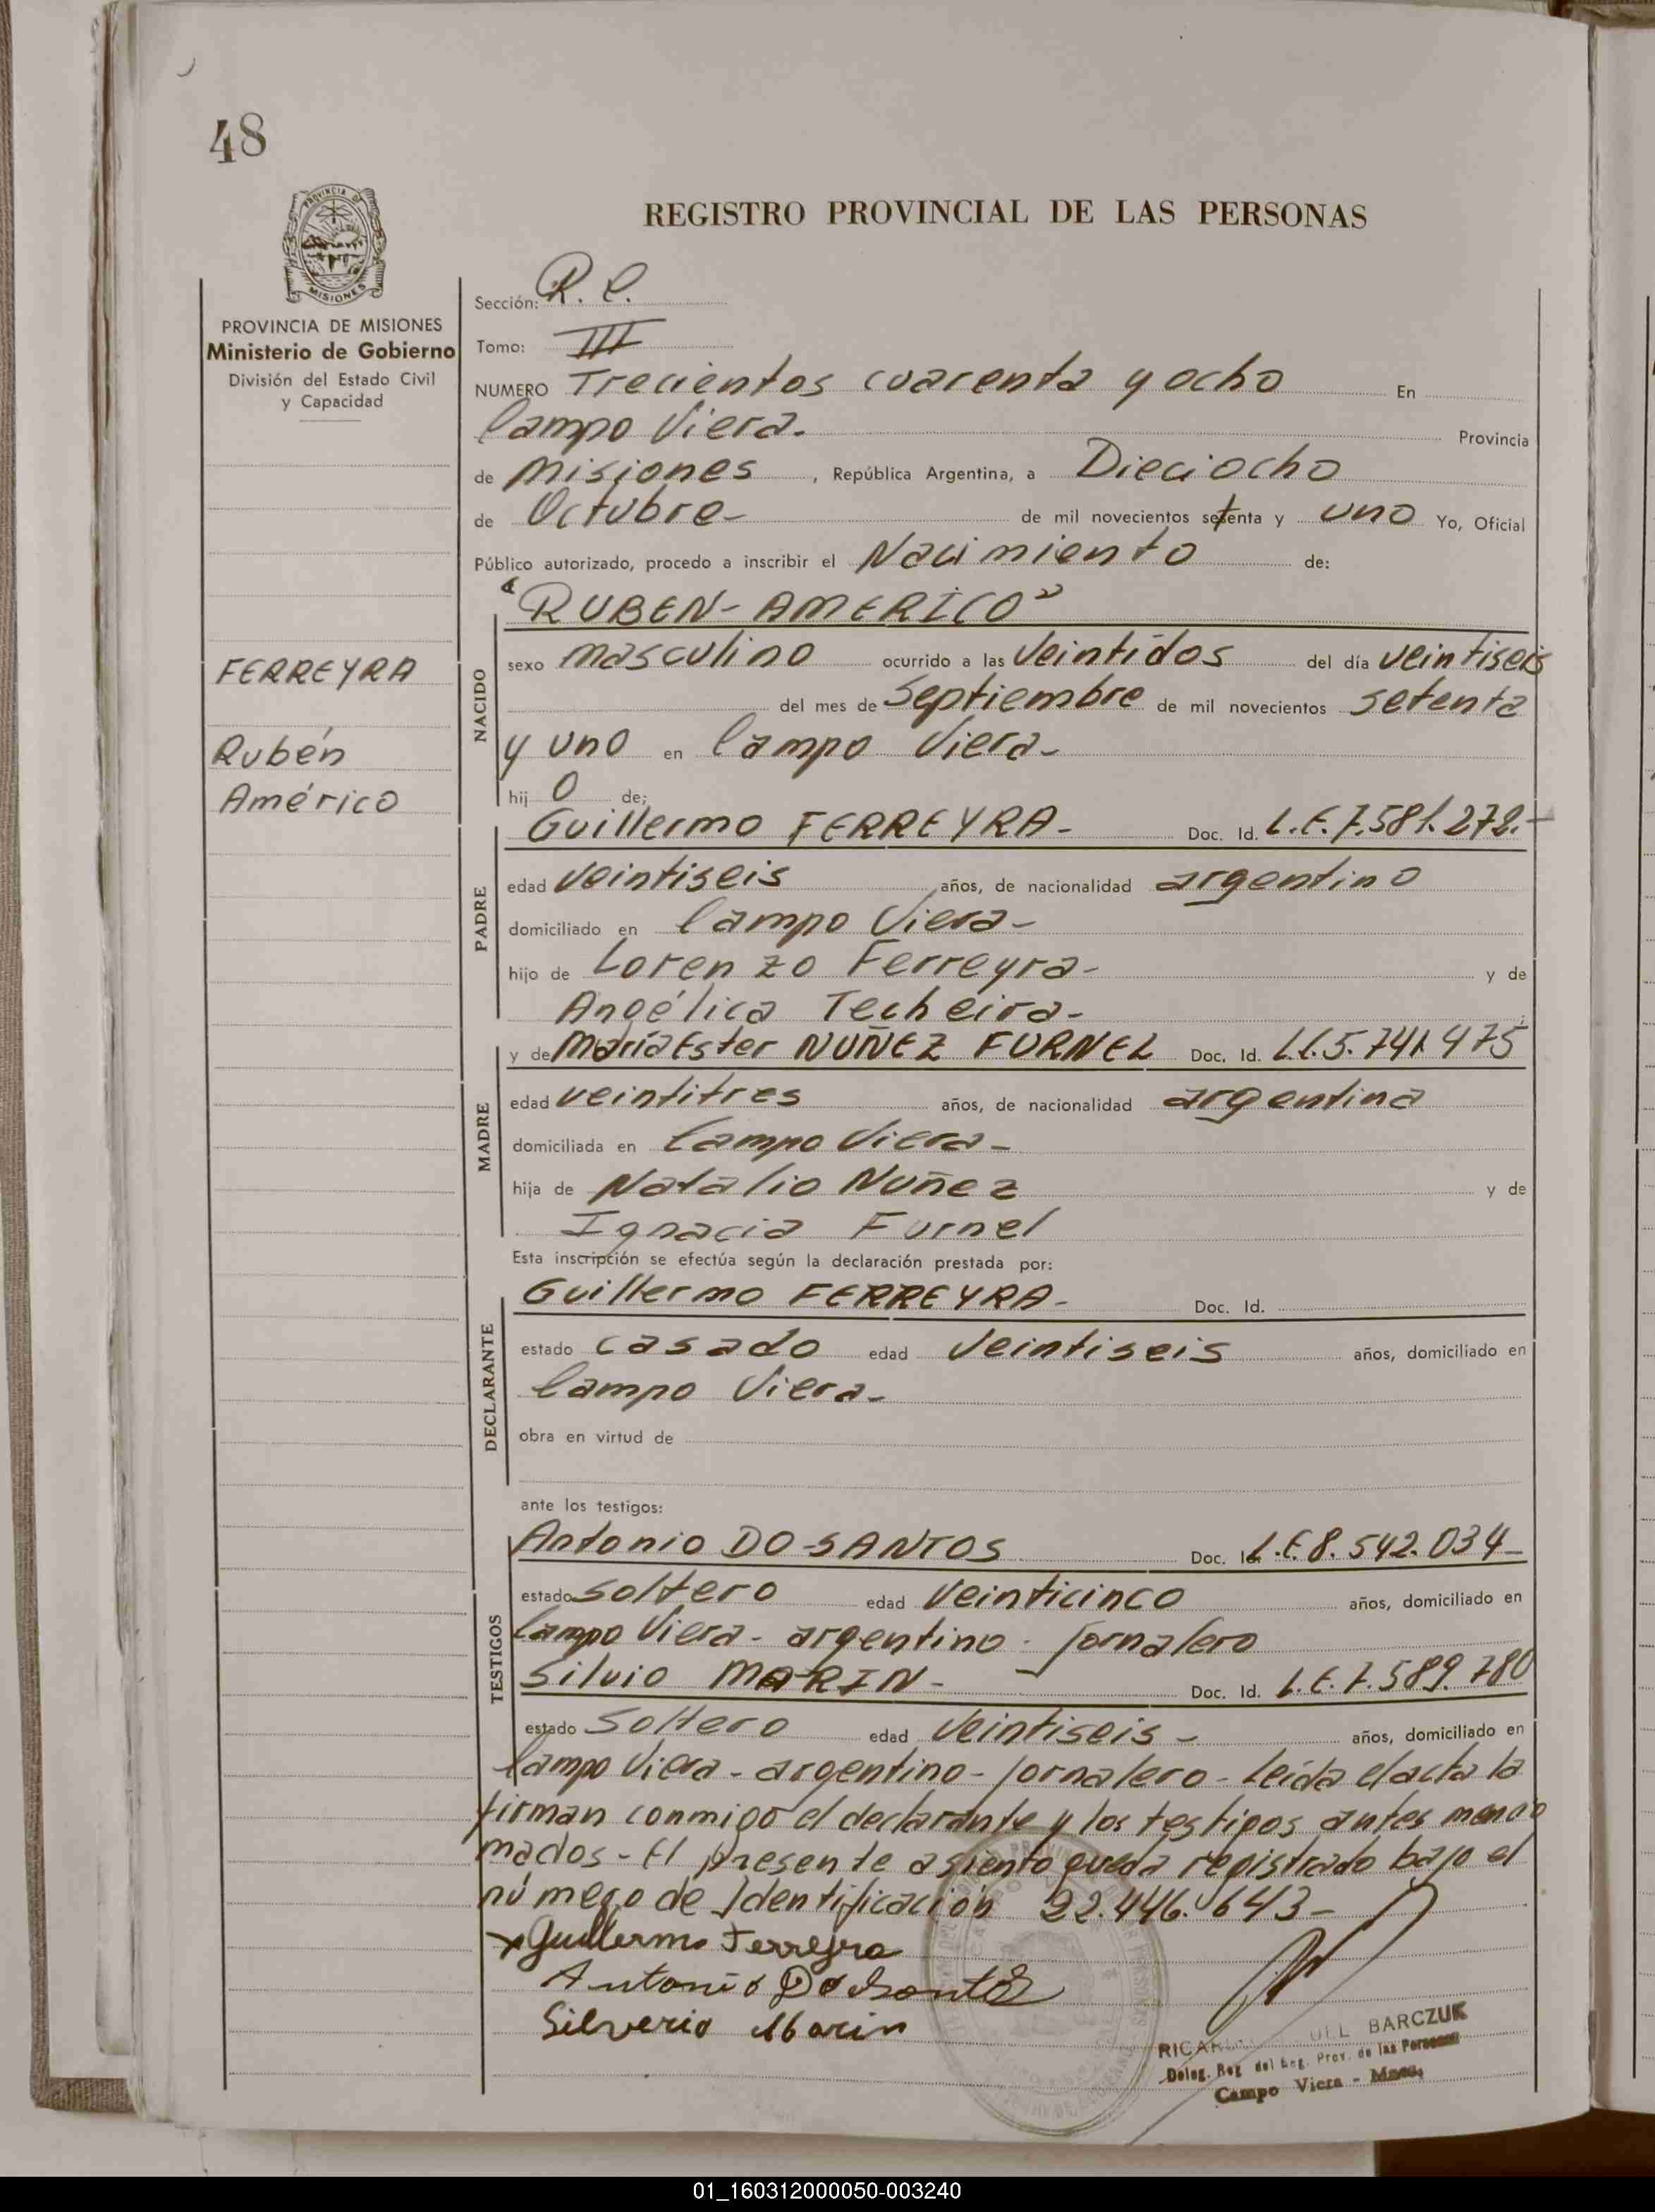 48
REGISTRO PROVINCIAL DE LAS PERSONAS
PROVINCIA DE
MISIONES
PROVINCIA DE MISIONES
Ministerio de Gobierno
División del Estado Civil
y Capacidad
FERREYRA
Rubén
Américo
Sección: R. C.
Tomo: III
NUMERO Trecientos cuarenta y ocho En
Campo Viera.- Provincia
de Misiones, República Argentina, a Dieciocho
de Octubre- de mil novecientos setenta y uno Yo, Oficial
Público autorizado, procedo a inscribir el Nacimiento de:
NACIDO
"RUBEN-AMERICO"
sexo masculino ocurrido a las veintidos del día veintiseis
del mes de Septiembre de mil novecientos setenta
y uno en Campo Viera-
hij o de;
PADRE
Guillermo FERREYRA- Doc. Id. L.E.7.581.272.-
edad veintiseis años, de nacionalidad argentino
domiciliado en Campo Viera-
hijo de Lorenzo Ferreyra- y de
Angélica Techeira-
MADRE
y de María Ester NUÑEZ FURNEL Doc. Id. L.C.5.741.475
edad veintitres años, de nacionalidad argentina
domiciliada en Campo Viera-
hija de Natalio Nuñez y de
Ignacia Furnel
Esta inscripción se efectúa según la declaración prestada por:
DECLARANTE
Guillermo FERREYRA- Doc. Id.
estado casado edad veintiseis años, domiciliado en
Campo Viera-
obra en virtud de
ante los testigos:
TESTIGOS
Antonio DO-SANTOS Doc. Id. L.E.8.542.034-
estado soltero edad veinticinco años, domiciliado en
Campo Viera- argentino- Jornalero
Silvio MARIN- Doc. Id. L.E.7.589.780
estado soltero edad veintiseis- años, domiciliado en
Campo Viera-argentino-Jornalero-Leída el acta la
firman conmigo el declarante y los testigos antes mencio
nados-El presente asiento queda registrado bajo el
número de Identificación 22.446.643-
Guillermo Ferreyra
Antonio Do Santos
Silverio Marin
BARCZUK
Deleg. Reg. del Reg. Prov. de las Personas
Campo Viera - Mnes.
01_160312000050-003240